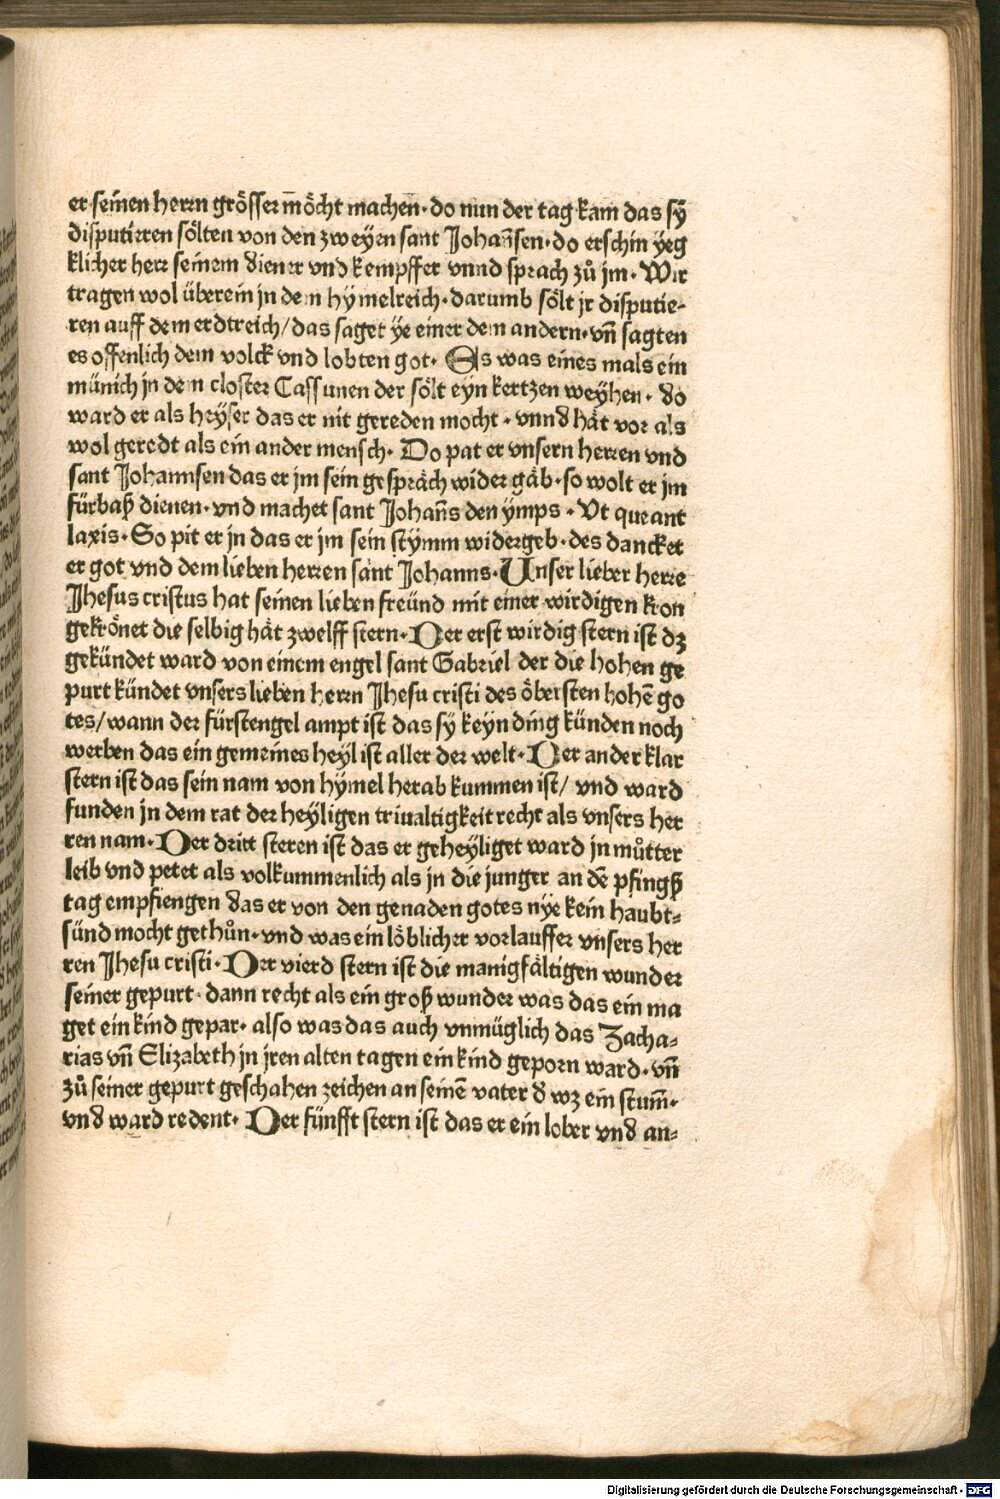 er seinen herrn grösser möcht machen· do nun der tag kam das sÿ
disputirren sölten von den zweÿen sant Johañsen· do erschin ÿeg
klicher herr seinem diener vnd kempffer vnnd sprach zů jm· Wir
tragen wol überein jn dem hÿmelreich· darumb sölt jr disputie-
ren auff dem erdtreich/ das saget ÿe einer dem andern· vñ sagten
es offenlich dem volck vnd lobten got· Es was eines mals ein
münich jn dem closter Cassunen der sölt eyn kertzen weÿhen· do
ward er als heÿser das er nit gereden mocht· vnnd hät vor als
wol geredt als ein ander mensch· Do pat er vnsern herren vnd
sant Johannsen das er jm sein gespräch wider gäb· so wolt er jm
fürbaß dienen· vnd machet sant Johañs den ÿmps· Vt queant
laxis· So pit er jn das er jm sein stÿmm widergeb· des dancket
er got vnd dem lieben herren sant Johanns· Unser lieber herre
Jhesus cristus hat seinen lieben freünd mit einer wirdigen kron
gekrönet die selbig hät zwelff stern· Der erst wirdig stern ist dz
gekündet ward von einem engel sant Gabriel der die hohen ge
purt kündet vnsers lieben herrn Jhesu cristi des öbersten hohē go
tes/ wann der fürstengel ampt ist das sÿ keÿn ding künden noch
werben das ein gemeines heÿl ist aller der welt· Der ander klar
stern ist das sein nam von hÿmel herab kummen ist/ vnd ward
funden jn dem rat der heÿligen triualtigkeit recht als vnsers her
ren nam· Der dritt steren ist das er geheÿliget ward jn můtter
leib vnd petet als volkummenlich als jn die junger an dē pfingß
tag empfiengen das er von den genaden gotes nÿe kein haubt-
sünd mocht gethůn· vnd was ein löblicher vorlauffer vnsers her
ren Jhesu cristi· Der vierd stern ist die manigfältigen wunder
seiner gepurt· dann recht als ein groß wunder was das ein ma
get ein kind gepar· also was das auch vnmüglich das Zacha-
rias vñ Elizabeth jn jren alten tagen ein kind geporn ward· vñ
zů seiner gepurt geschahen zeichen an seinē vater d wz ein stum̄·
vnd ward redent· Der fünfft stern ist das er ein lober vnd an-
Digitalisierung gefördert durch die Deutsche Forschungsgemeinschaft · DFG